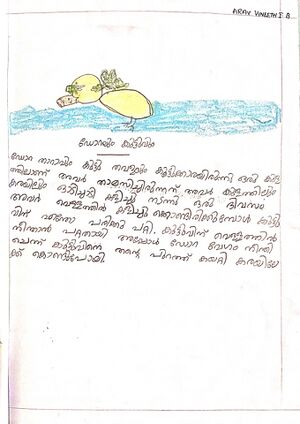 ARAV VINEETH I B
ഡോറയും കുട്ടുവും
ഡോറ താറാവും കുട്ടു തവളയും കൂട്ടുകാരായിരുന്നു ഒരു കുള
ത്തിലാണ് അവർ താമസിച്ചിരുന്നത് അവർ കുളത്തിലും
കരയിലും ഓടിച്ചാടി കളിച്ചു നടന്നു ഒരു ദിവസം
അവർ വെള്ളത്തിൽ കളിച്ചു കൊണ്ടിരിക്കുമ്പോൾ കുട്ടു
വിന് എന്തോ പരിക്കു പറ്റി. കുട്ടുവിന് വെള്ളത്തിൽ
നീന്താൻ പറ്റാതായി അപ്പോൾ ഡോറ വേഗം നീന്തി
ചെന്ന് കുട്ടുവിനെ തന്റെ പുറത്ത് കയറ്റി കരയിലേ
ക്ക് കൊണ്ടുപോയി